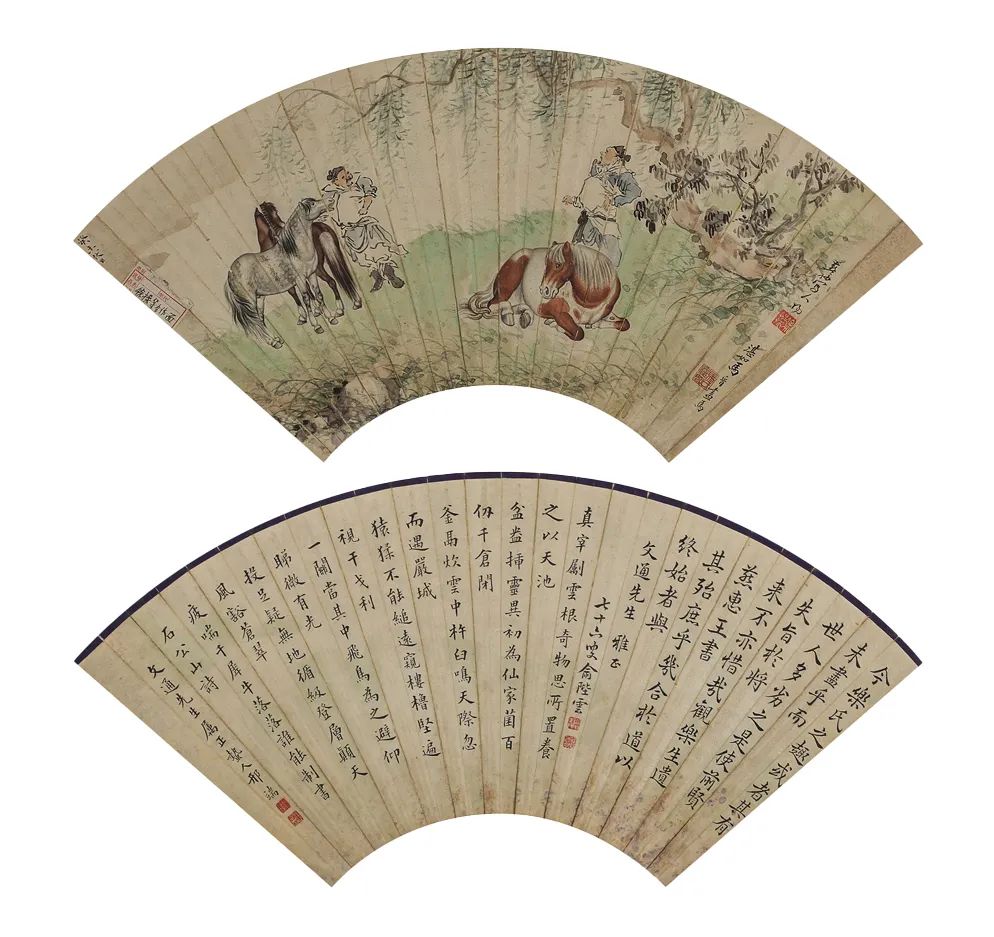 燕孫寫人物
湛如馬晉畫馬
今樂氏之趣或者其有
未盡乎而
世人多劣之是使前賢
失旨於將
来不亦惜哉觀樂生遺
燕惠王書
其殆庶乎幾合於道以
終始者與
文通先生 雅正
七十六叟俞陛雲
真宰劚雲根奇物思所置養
之以天池
盆盎揷靈異初為仙家菌百
仞千倉閉
釜馬炊雲中杵臼鳴天際忽
而遇嚴城
猿猱不能縋遠窺樓櫓堅逼
視干戈利
一關當其中飛鳥為之避仰
睇微有光
投足疑無地循級登層顛天
風豁蒼翠
疲喘千犀牛落落誰能制書
石公山詩
文通先生屬正蟄人邢端